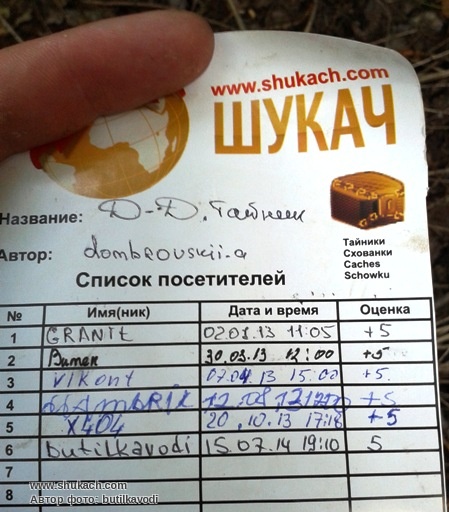 www.shukach.com
ШУКАЧ
Название: Д-Д. Тайник
Автор: dombrovskii-a
Тайники
Схованки
Caches
Schowku
Список посетителей
№ Имя(ник) Дата и время Оценка
1 GRANIt 02.03.13 11:05 +5
2 Витек 30.03.13 12:00 +5
3 Vikont 07.04.13 15:00 +5
4 +5
5 X404 20.10.13 17:18 +5
6 butilkavodi 15.07.14 19:10 5
7
8
www.shukach.com
Автор фото: butilkavodi